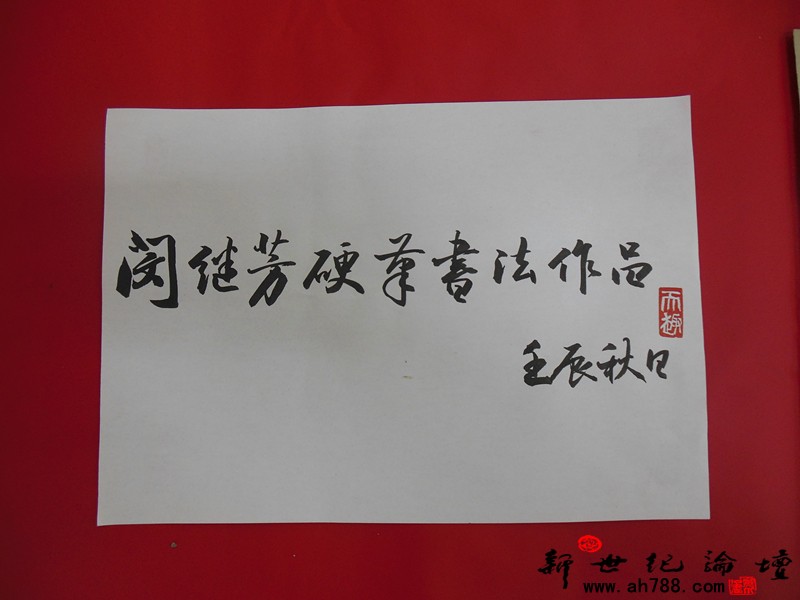 闵继芳硬笔书法作品
壬辰秋日
新世纪論壇
www.ah788.com